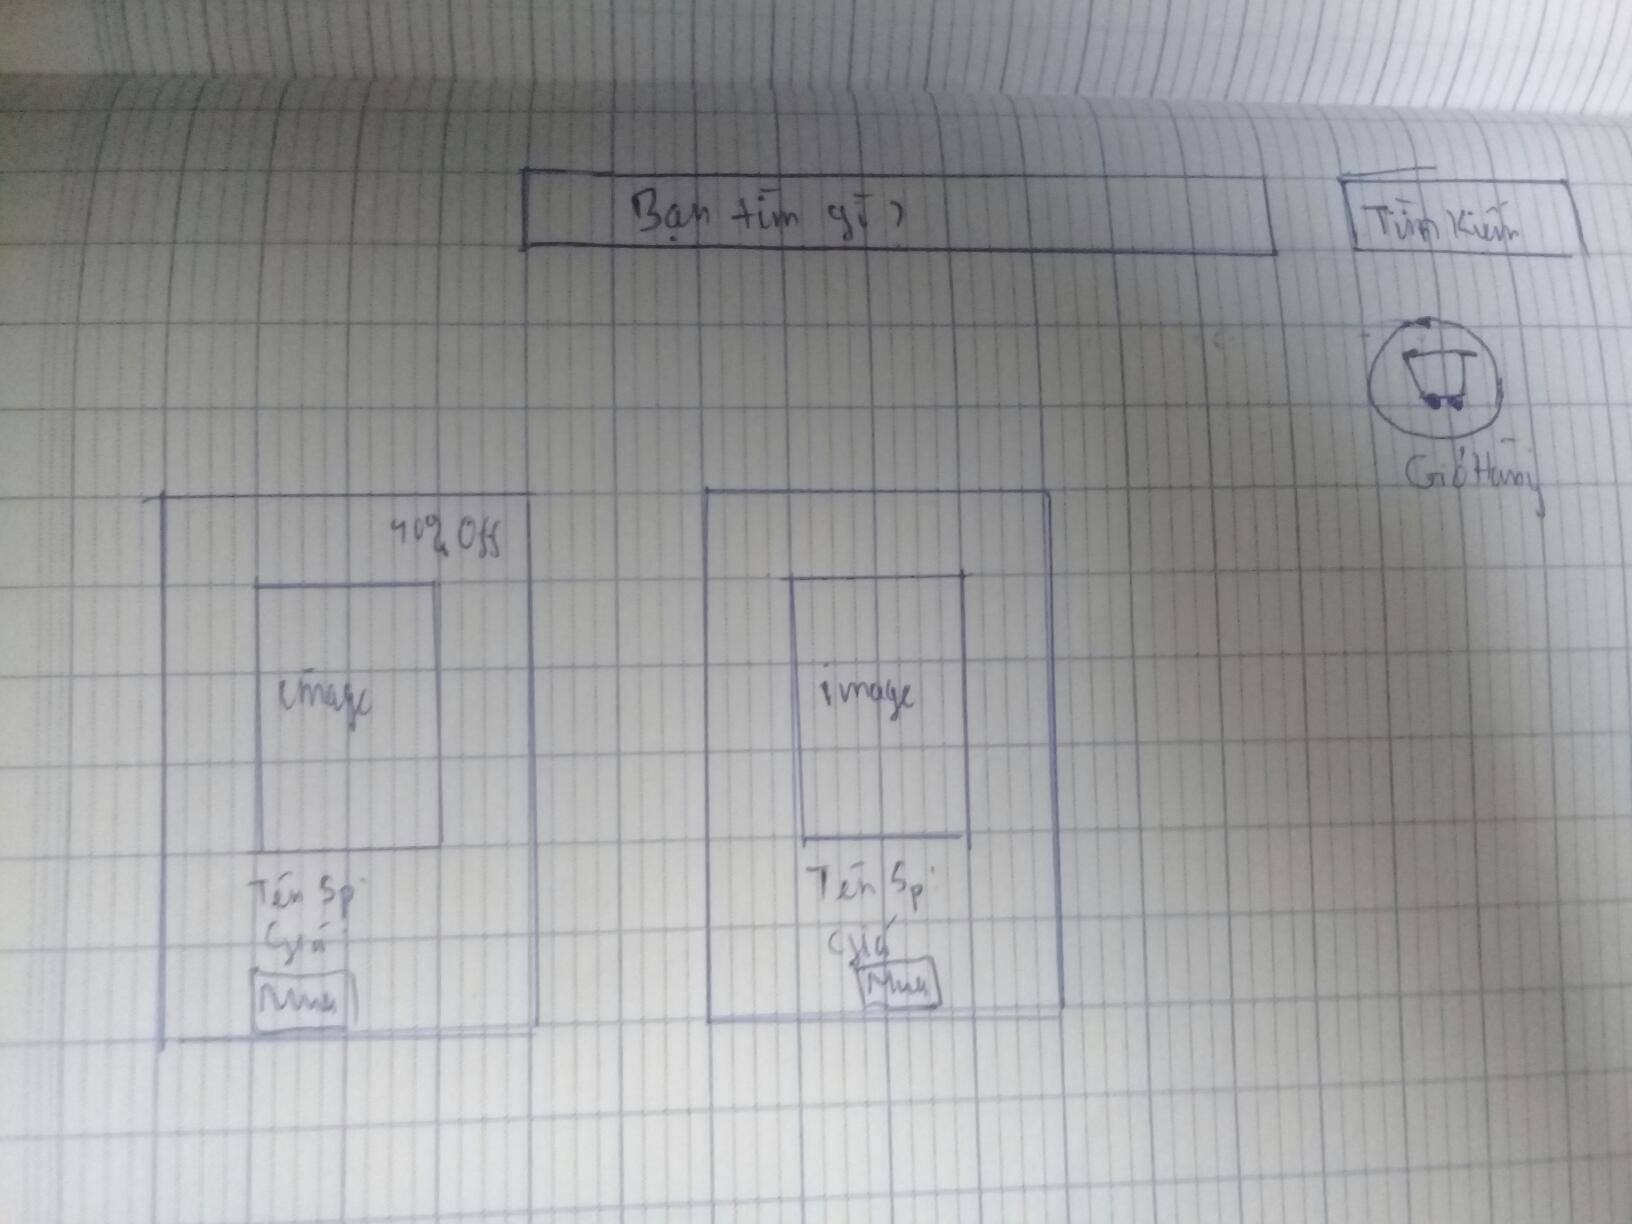 Bạn tìm gì?
Tìm Kiếm
Giỏ Hàng
40% Off
image
Tên Sp
Giá
Mua
image
Tên Sp
Giá
Mua